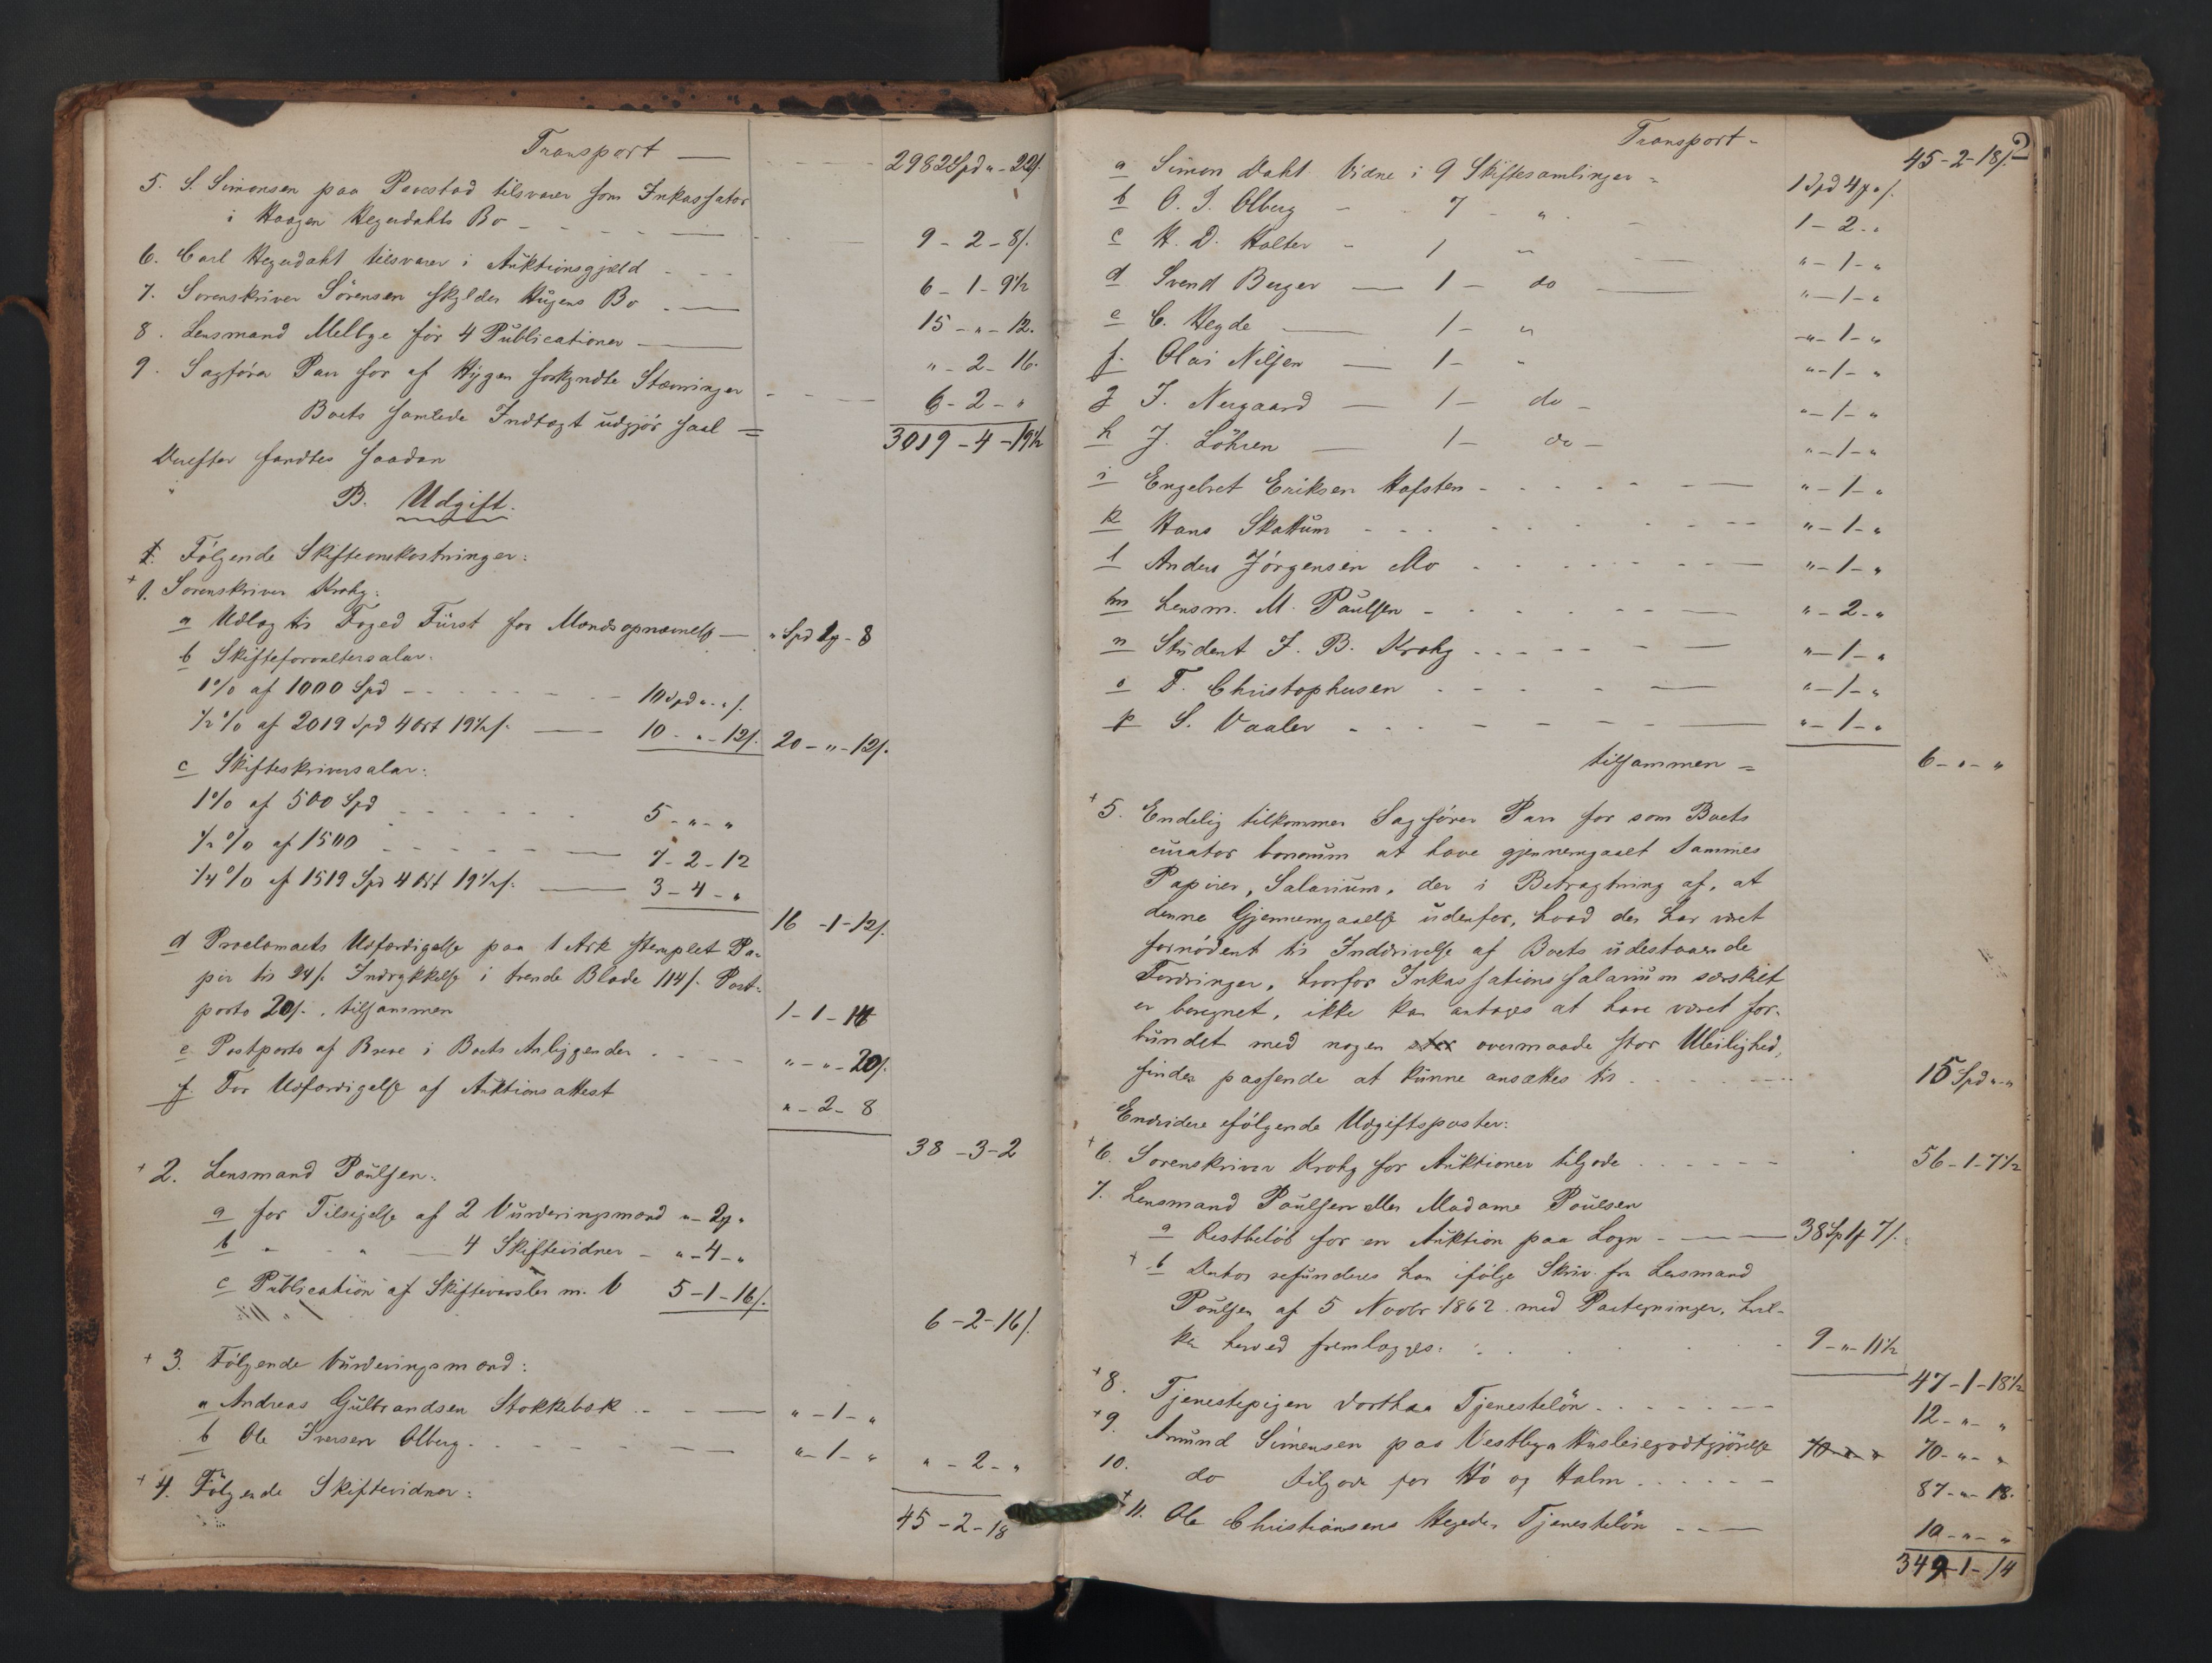 Transport — 2982 Spd " - 22 ß.
5. S. Simonsen paa Pavestad tilsvarer som Inkassator
i Haagen Hegerdahls Bo - 9 - 2 - 8 ß.
6. Carl Hegerdahl tilsvarer i Auktionsgjæld - 6 - 1 - 9½
7. Sorenskriver Sörensen skylder Bo - 15 - " - 12.
8. Lensmand Melbye för 4 Publicationer — " - 2 - 16.
9. Sagförer Parr for af forkyndte Stævninger - 6 - 2 - "
Boets samlede Indtægt udgjör saal = 3019 - 4 - 19½
Derefter fandtes saadan
B. Udgift.
Fölgende Skifteomkostninger:
+ 1. Sorenskriver Krohg:
a Udlæg til Foged Fürst for Mandsopnævnelse — " Spd 2 - 8
b Skifteforvaltersalær:
1% af 1000 Spd - 10 Spd " - " ß.
½% af 2019 Spd 4 Ort 19½ ß. — 10 - " - 12 ß. 20 - " - 12 ß.
c Skifteskriversalær:
1% af 500 Spd - 5 - " - "
½% af 1500 — 7 - 2 - 12
¼% af 1519 Spd 4 Ort 19½ ß. — 3 - 4 - "
16 - 1 - 12 ß.
d Proclamaets Udfærdigelse paa 1 Ark stemplet Pa-
pir til 24 ß. Indrykkelse i trende Blade 114 ß. Post-
porto 20 ß., tilsammen 1 - 1 - 14
e Postporto af Breve i Boets Anliggender - " - " - 20 ß.
f. For Udfærdigelse af Auktionsattest " - 2 - 8
38 - 3 - 2
+ 2. Lensmand Poulsen:
a for Tilsigelse af 2 Vurderingsmænd " - 2 - "
b " " — 4 Skiftevidner - " - 4 - "
c Publication af m. V 5 - 1 - 16 ß.
6 - 2 - 16 ß.
+ 3. Fölgende Vurderingsmænd:
a Andreas Gulbrandsen Stokkebæk - " - 1 - "
b Ole Iversen Olberg - " - 1 - " " - 2 - "
+ 4. Fölgende Skiftevidner:
45 - 2 - 18
2
Transport - 45 - 2 - 18 ß.
a Simon Dahl Vidne i 9 Skiftesamlinger - 1 Spd 4 " ß.
b O. I. Olberg - 7 - " 1 - 2 - "
c H. D. Halter - 1 " " - 1 - "
d Svend Berger — 1 - do — " - 1 - "
e C. Hegde — 1 - " " - 1 - "
f. Olai Nilsen — 1 - " " - 1 - "
g I. Nergaard — 1 - do - " - 1 - "
h J. Löhren — 1 - do - " - 1 - "
i Engebret Eriksen Hafsten - " - 1 - "
k Hans Skattum - " - 1 - "
l Anders Jörgensen Mo - " - 1 - "
m Lensm. M. Paulsen - " - 2 - "
n Student J. B. Krohg - " - 1 - "
o T. Christophersen - " - 1 - "
p S. Vaaler - " - 1 - "
tilsammen = 6 - " - "
+ 5. Endelig tilkommer Sagförer Parr for som Boets
curator bonorum at have gjennemgaaet Sammes
Papirer, Salarium, der i Betragtning af, at
denne Gjennemgaaelse udenfor, hvad der har været
fornödent til Inddrivelse af Boets udestaaende
Fordringer, hvorfor Inkassationssalarium særskilt
er beregnet, ikke kan antages at have været for-
bundet med nogen stor overmaade stor Uleilighed,
findes passende at kunne ansættes til - 15 Spd " - "
Endvidere fölgende Udgiftsposter:
+ 6. Sorenskriver Krohg for Auktioner tilgode - 56 - 1 - 7½
7. Lensmand Poulsen eller Madame Poulsen
a Restbelöb for en Auktion paa Logn - 38 Sp 1 7 ß.
+ b Derhos refunderes han ifölge Skriv. fra Lensmand
Poulsen af 5 Novbr 1862 med Paategninger, hvil-
ke herved fremlægges: 9 - " - 11½
47 - 1 - 18½
+ 8. Tjenestepigen Dorthea Tjenestelön - 12 - " - "
+ 9. Amund Simensen paa Vestbya Husleiegodtgjörelse 70 - " - " 70 - " - "
10. do tilgode for Hö og Halm - 87 - " - 18.
+ 11. Ole Christiansens Tjenestelön - 10 - " - "
349 - 1 - 14